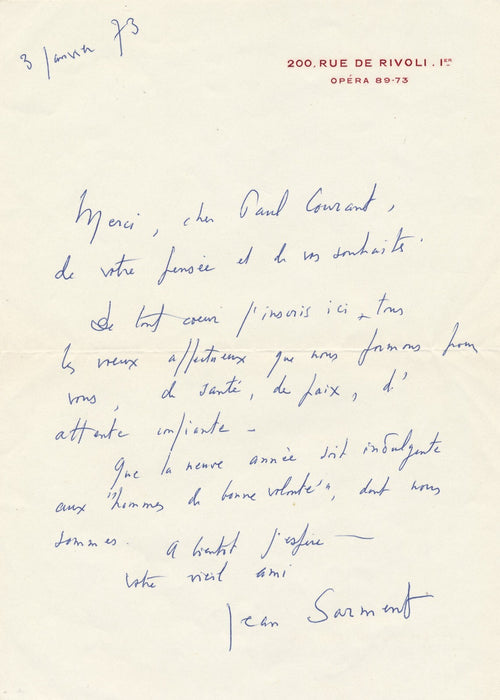 3 janvier 73
200. RUE DE RIVOLI. Iᴱᴿ
OPÉRA 89-73
Merci, cher Paul Courant,
de votre pensée et de vos souhaits.
De tout coeur j'inscris ici tous
les voeux affectueux que nous formons pour
vous, de santé, de paix, d'
attente confiante -
Que la neuve année soit indulgente
aux "hommes de bonne volonté", dont nous
sommes. A bientôt j'espère —
votre vieil ami
Jean Sarment